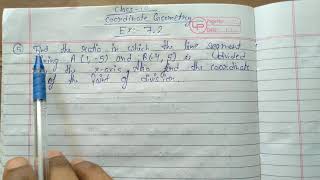 Class-10
Coordinate Geometry
Ex- 7.2
⑤ Find the ratio in which the line segment
A(1,-5) and B(-4, 5) is divided
the x-axis. Also find the coordinate
of the point of division